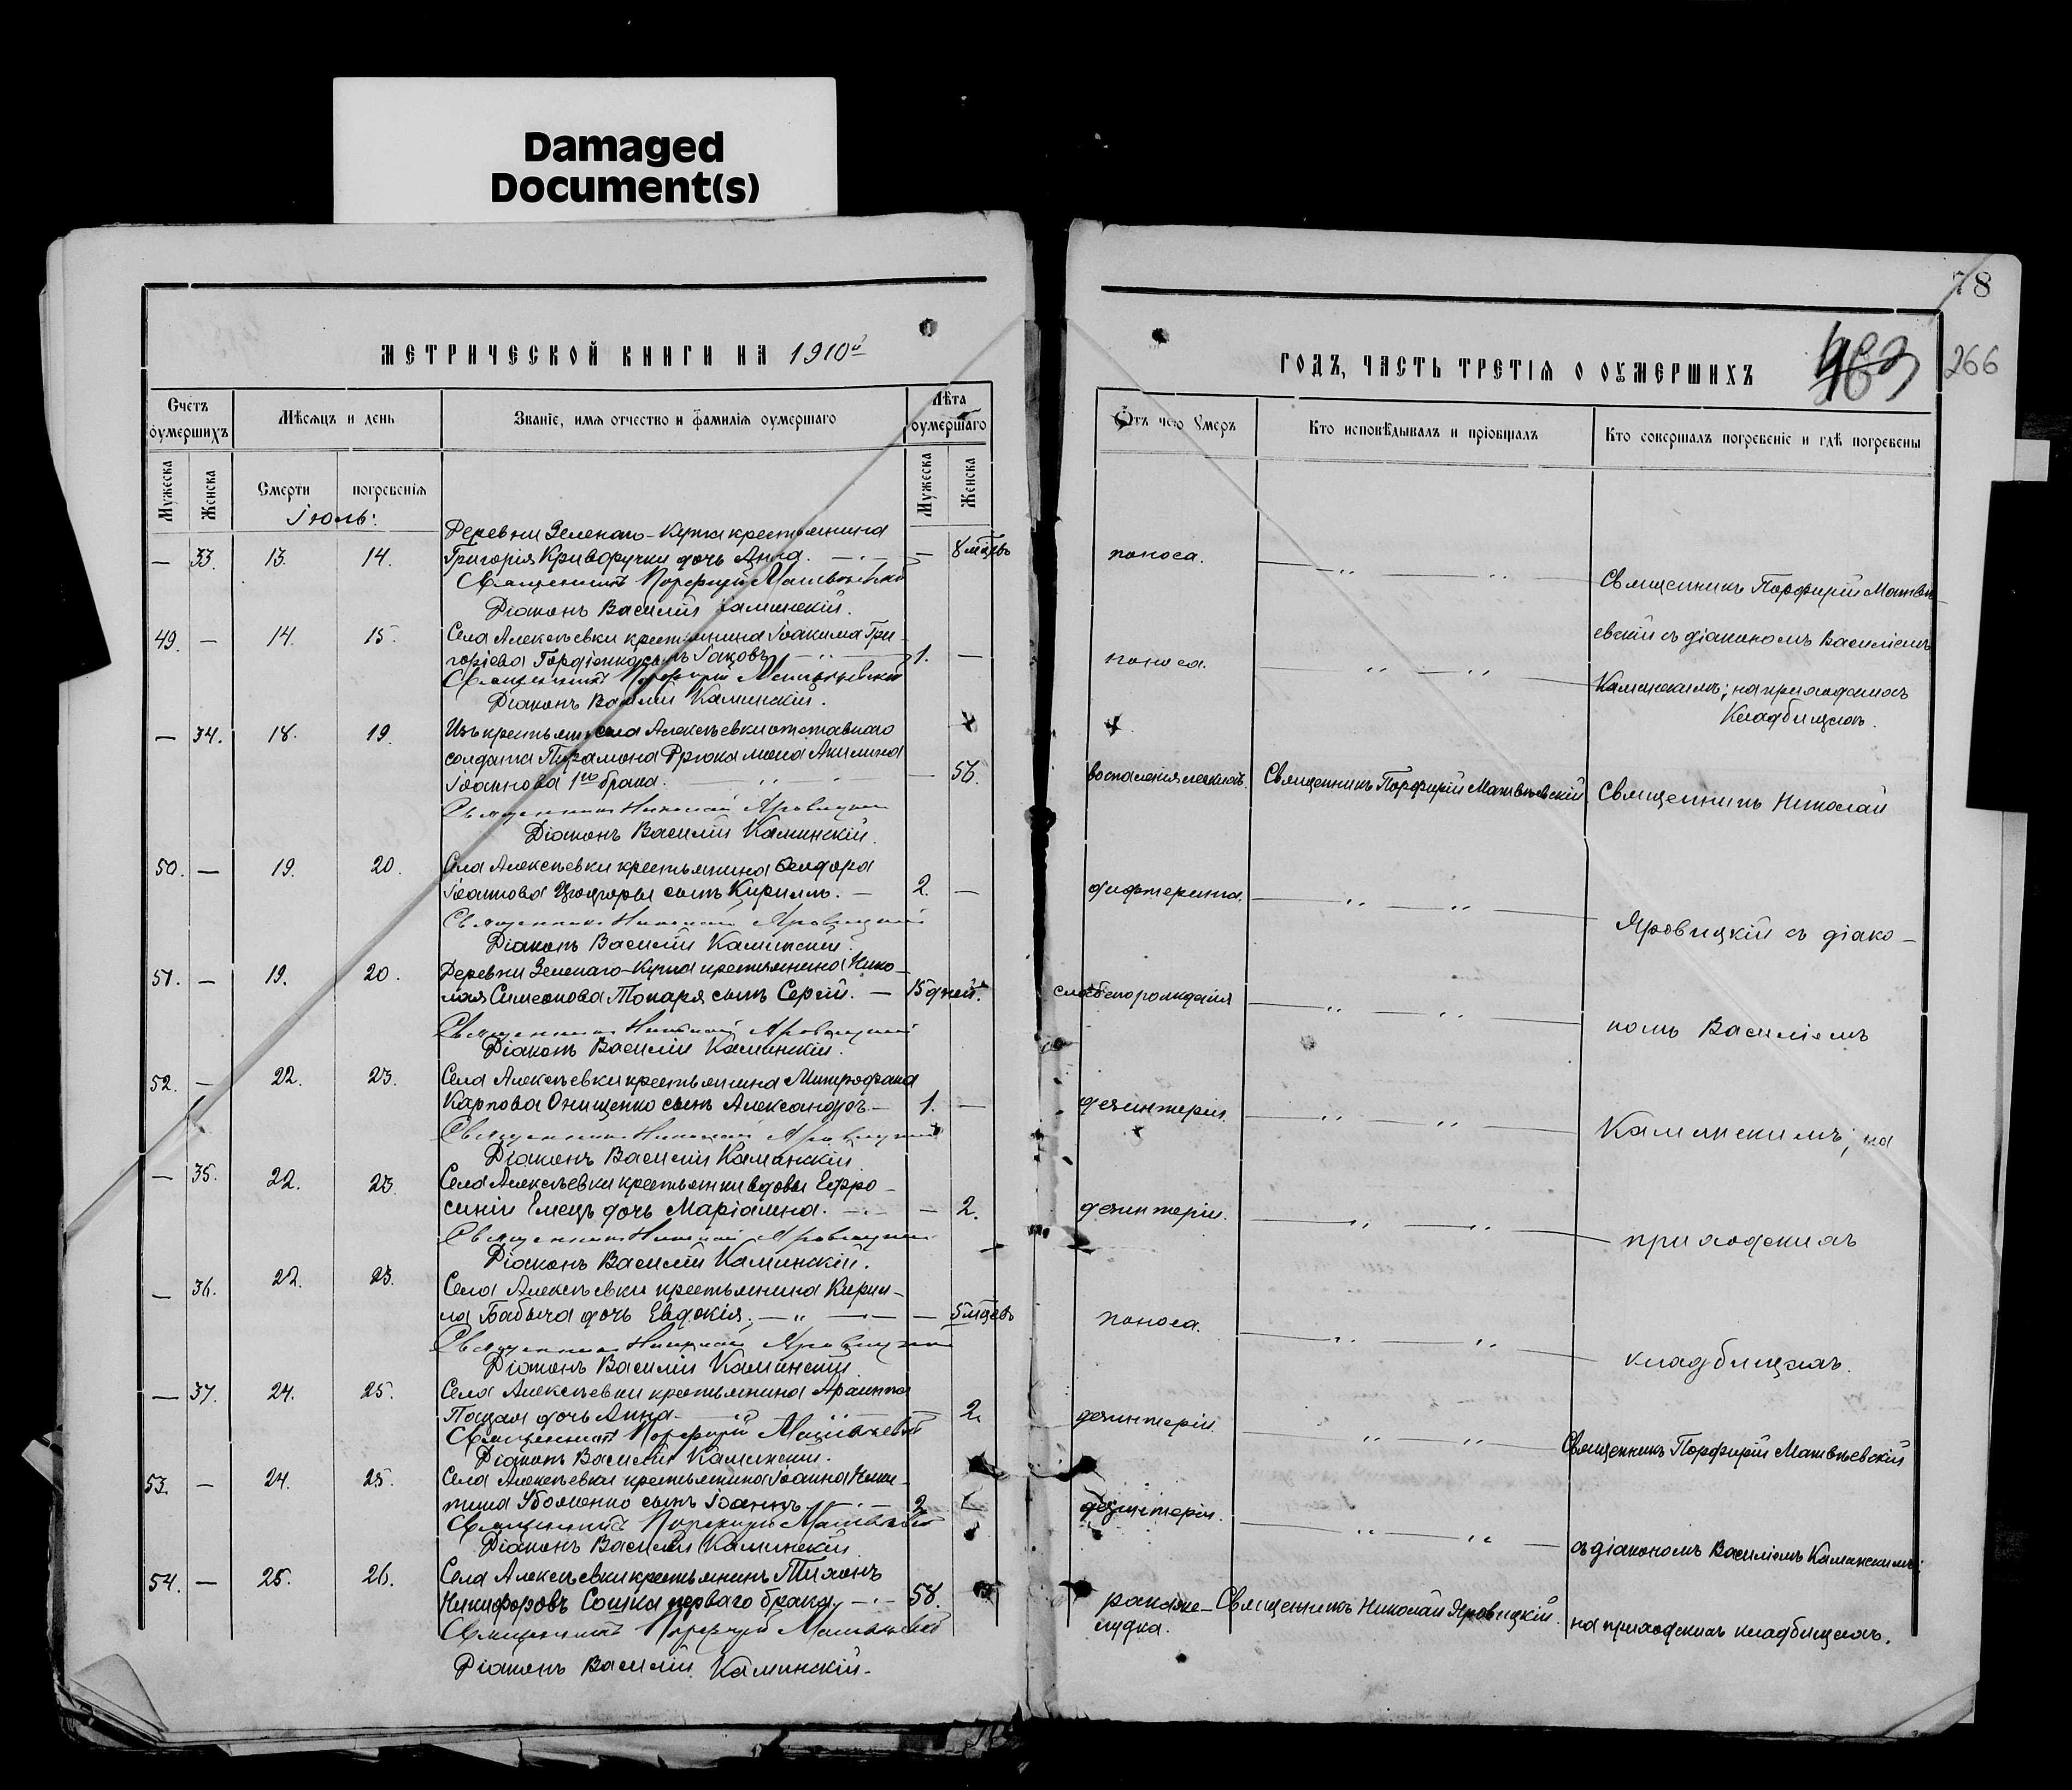 Damaged
Document(s)
МЕТРИЧЕСКОЙ КНИГИ НА 1910й
Счетъ оумершихъ
Мѣсяцъ и день
Званіе, имя отчество и фамилія оумершаго
Лѣта оумершаго
Мужеска
Женска
Смерти
погребенія
Мужеска
Женска
Іюль:
Деревни Зеленаго-Кута крестьянина
— 33. 13. 14. Григорія Криворучки дочь Анна. — 8 мцевъ
Священникъ Порфирій Матвѣевскій
Діаконъ Василій Каминскій.
49. — 14. 15. Села Алексѣевки крестьянина Іоакима Гри-
горіева Гордіенко сынъ Іаковъ 1. —
Священникъ Порфирій Матвѣевскій
Діаконъ Василій Каминскій.
— 34. 18. 19. Изъ крестьянъ села Алексѣевки отставного
солдата Акилина
Іоаннова 1го брака. — 56.
Священникъ Николай Яровицкій
Діаконъ Василій Каминскій.
50. — 19. 20. Села Алексѣевки крестьянина Ѳеодора
Іоаннова сынъ Кириллъ. — 2. —
Священникъ Николай Яровицкій
Діаконъ Василій Каминскій.
51. — 19. 20. Деревни Зеленаго-Кута крестьянина Нико-
лая Симеонова Токаря сынъ Сергій. — 15 дней.
Священникъ Николай Яровицкій
Діаконъ Василій Каминскій.
52. — 22. 23. Села Алексѣевки крестьянина Митрофана
Карпова Онищенко сынъ Александръ — 1. —
Священникъ Николай Яровицкій
Діаконъ Василій Каминскій
— 35. 22. 23. Села Алексѣевки крестьянки вдовы Ефро-
синіи Емецъ дочь Маріамна. — 2.
Священникъ Николай Яровицкій
Діаконъ Василій Каминскій.
— 36. 22. 23. Села Алексѣевки крестьянина Кирил-
ла Бабыча дочь Евдокія. — 5 мцевъ
Священникъ Николай Яровицкій
Діаконъ Василій Каминскій.
— 37. 24. 25. Села Алексѣевки крестьянина
Пацая дочь Анна — 2.
Священникъ Порфирій Матвѣевскій
Діаконъ Василій Каминскій.
53. — 24. 25. Села Алексѣевки крестьянина Іоанна Ники-
тина сынъ Іоаннъ — 2 —
Священникъ Порфирій Матвѣевскій
Діаконъ Василій Каминскій
54. — 25. 26. Села Алексѣевки крестьянинъ Тихонъ
Никифоровъ Сошка перваго брака. — 58.
Священникъ Порфирій Матвѣевскій
Діаконъ Василій Каминскій.
78
ГОДЪ, ЧАСТЬ ТРЕТІЯ О ОУМЕРШИХЪ
463
266
Отъ чего Умеръ
Кто исповѣдывалъ и пріобщалъ
Кто совершалъ погребеніе и гдѣ погребены
поноса.
Священникъ Порфирій Матвѣ-
евскій съ діакономъ Василіемъ
поноса.
Каминскимъ; на приходскихъ
кладбищахъ.
воспаленія легкихъ. Священникъ Порфирій Матвѣевскій. Священникъ Николай
дифтерита.
Яровицкій съ діако-
слабаго рожденія
номъ Василіемъ
дезинтеріи.
Каминскимъ; на
дезинтеріи.
приходскихъ
поноса.
кладбищахъ.
дезинтеріи.
Священникъ Порфирій Матвѣевскій
дезинтеріи.
съ діакономъ Василіемъ Каминскимъ;
рака же- Священникъ Николай Яровицкій.
лудка.
на приходскихъ кладбищахъ.